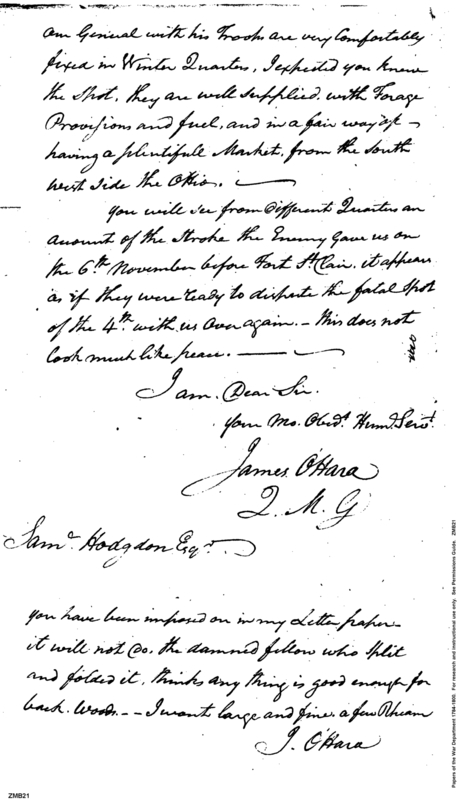 our General with his Troops are very Comfortably
fixed in Winter Quarters, I expected you knew
the Spot, they are well supplied with Forage
Provisions and fuel, and in a fair way of
having a plentifull Market, from the South
west side the Ohio. —
you will see from different Quarters an
account of the Stroke the Enemy Gave us on
the 6th November before Fort St Clair. it appears
as if they were ready to dispute the fatal Spot
of the 4th with us over again. — this does not
look much like peace. —
I am Dear Sir.
your Mo. Obedt Hum. Servt.
James O'Hara
Q. M. G
Saml Hodgdon Esqr.
you have been imposed on in my Letter paper
it will not do. the damned fellow who split
and folded it, thinks any thing is good enough for
back Woods — I want large and fine a few Rheam
J. O'Hara
ZMB21
Papers of the War Department 1784-1800. For research and instructional use only. See Permissions Guide. ZMB21